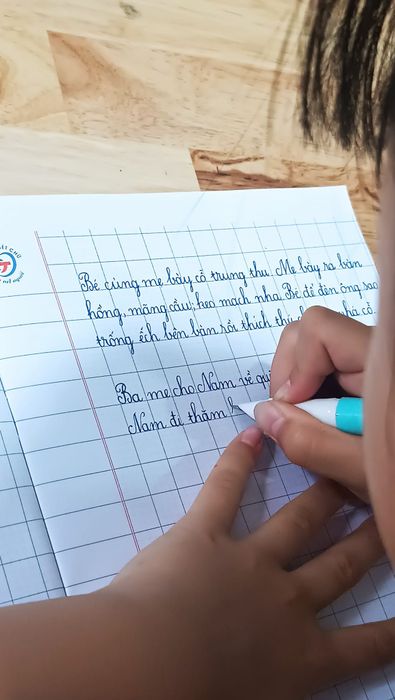 Bé cùng mẹ bày cỗ trung thu. Mẹ bày ra bàn
hồng, mãng cầu, kẹo mạch nha. Bé để đèn ông sao
trống ếch bên bàn rồi thích cỗ.
Ba mẹ cho Nam về
Nam đi thăm